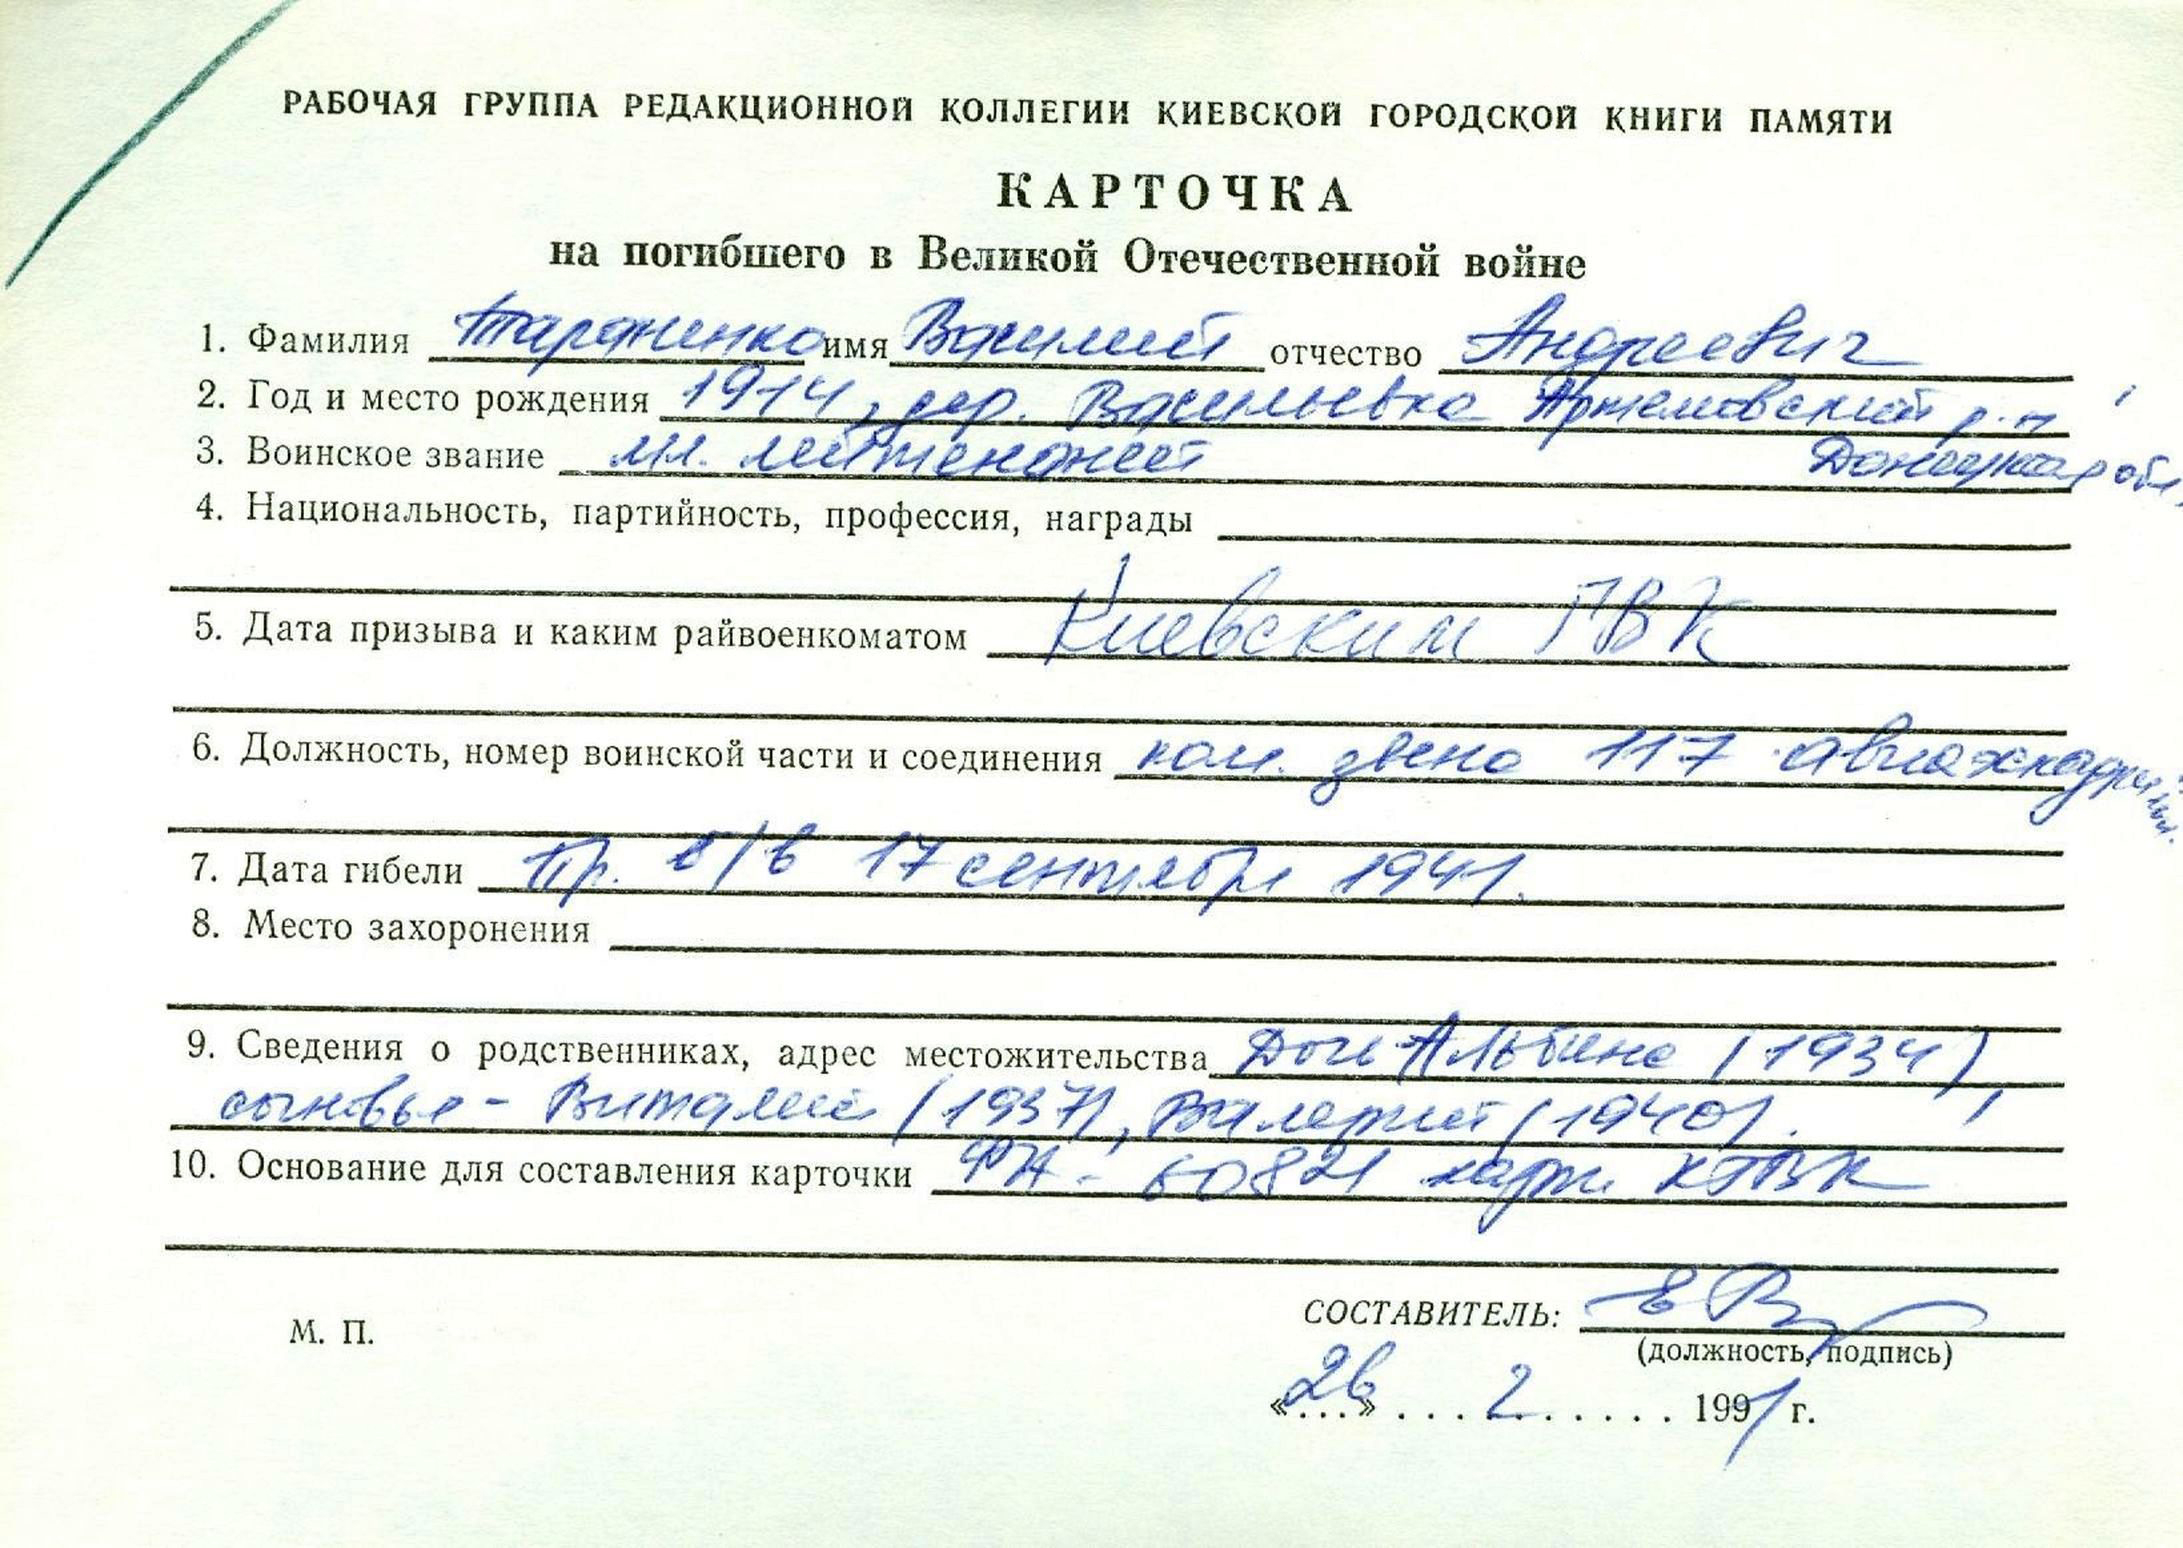 РАБОЧАЯ ГРУППА РЕДАКЦИОННОЙ КОЛЛЕГИИ КИЕВСКОЙ ГОРОДСКОЙ КНИГИ ПАМЯТИ
КАРТОЧКА
на погибшего в Великой Отечественной войне
1. Фамилия Тараненко имя Василий отчество Андреевич
2. Год и место рождения 1914, дер. Васильевка Артемовский р-н
Донецкая обл.
3. Воинское звание мл. лейтенант
4. Национальность, партийность, профессия, награды
5. Дата призыва и каким райвоенкоматом Киевским ГВК
6. Должность, номер воинской части и соединения ком. звена 117 авиаэскадрильи.
7. Дата гибели Пр. б/в 17 сентября 1941.
8. Место захоронения
9. Сведения о родственниках, адрес местожительства Дочь Альбина (1934),
сыновья - Виталий (1937), Валерий (1940).
10. Основание для составления карточки 60821 карт. КГВК
М. П.
СОСТАВИТЕЛЬ:
(должность, подпись)
«26» 2 1991 г.